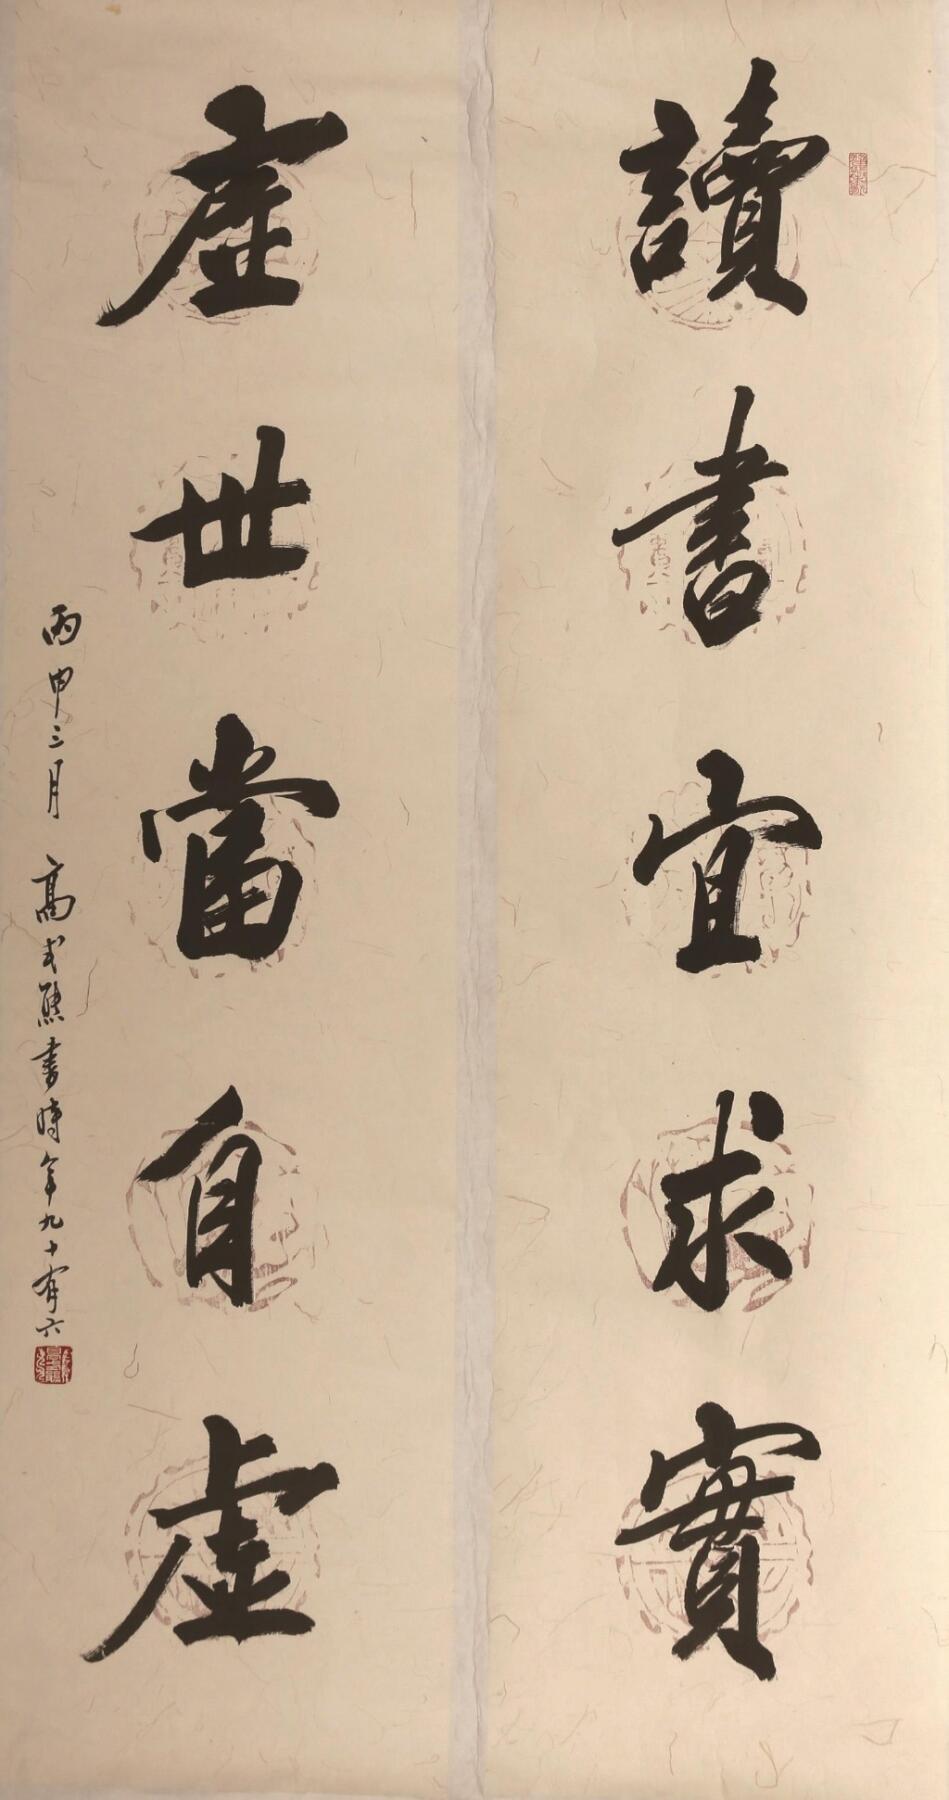 讀書宜求實
處世當自虛
丙申三月 高式熊書時年九十有六